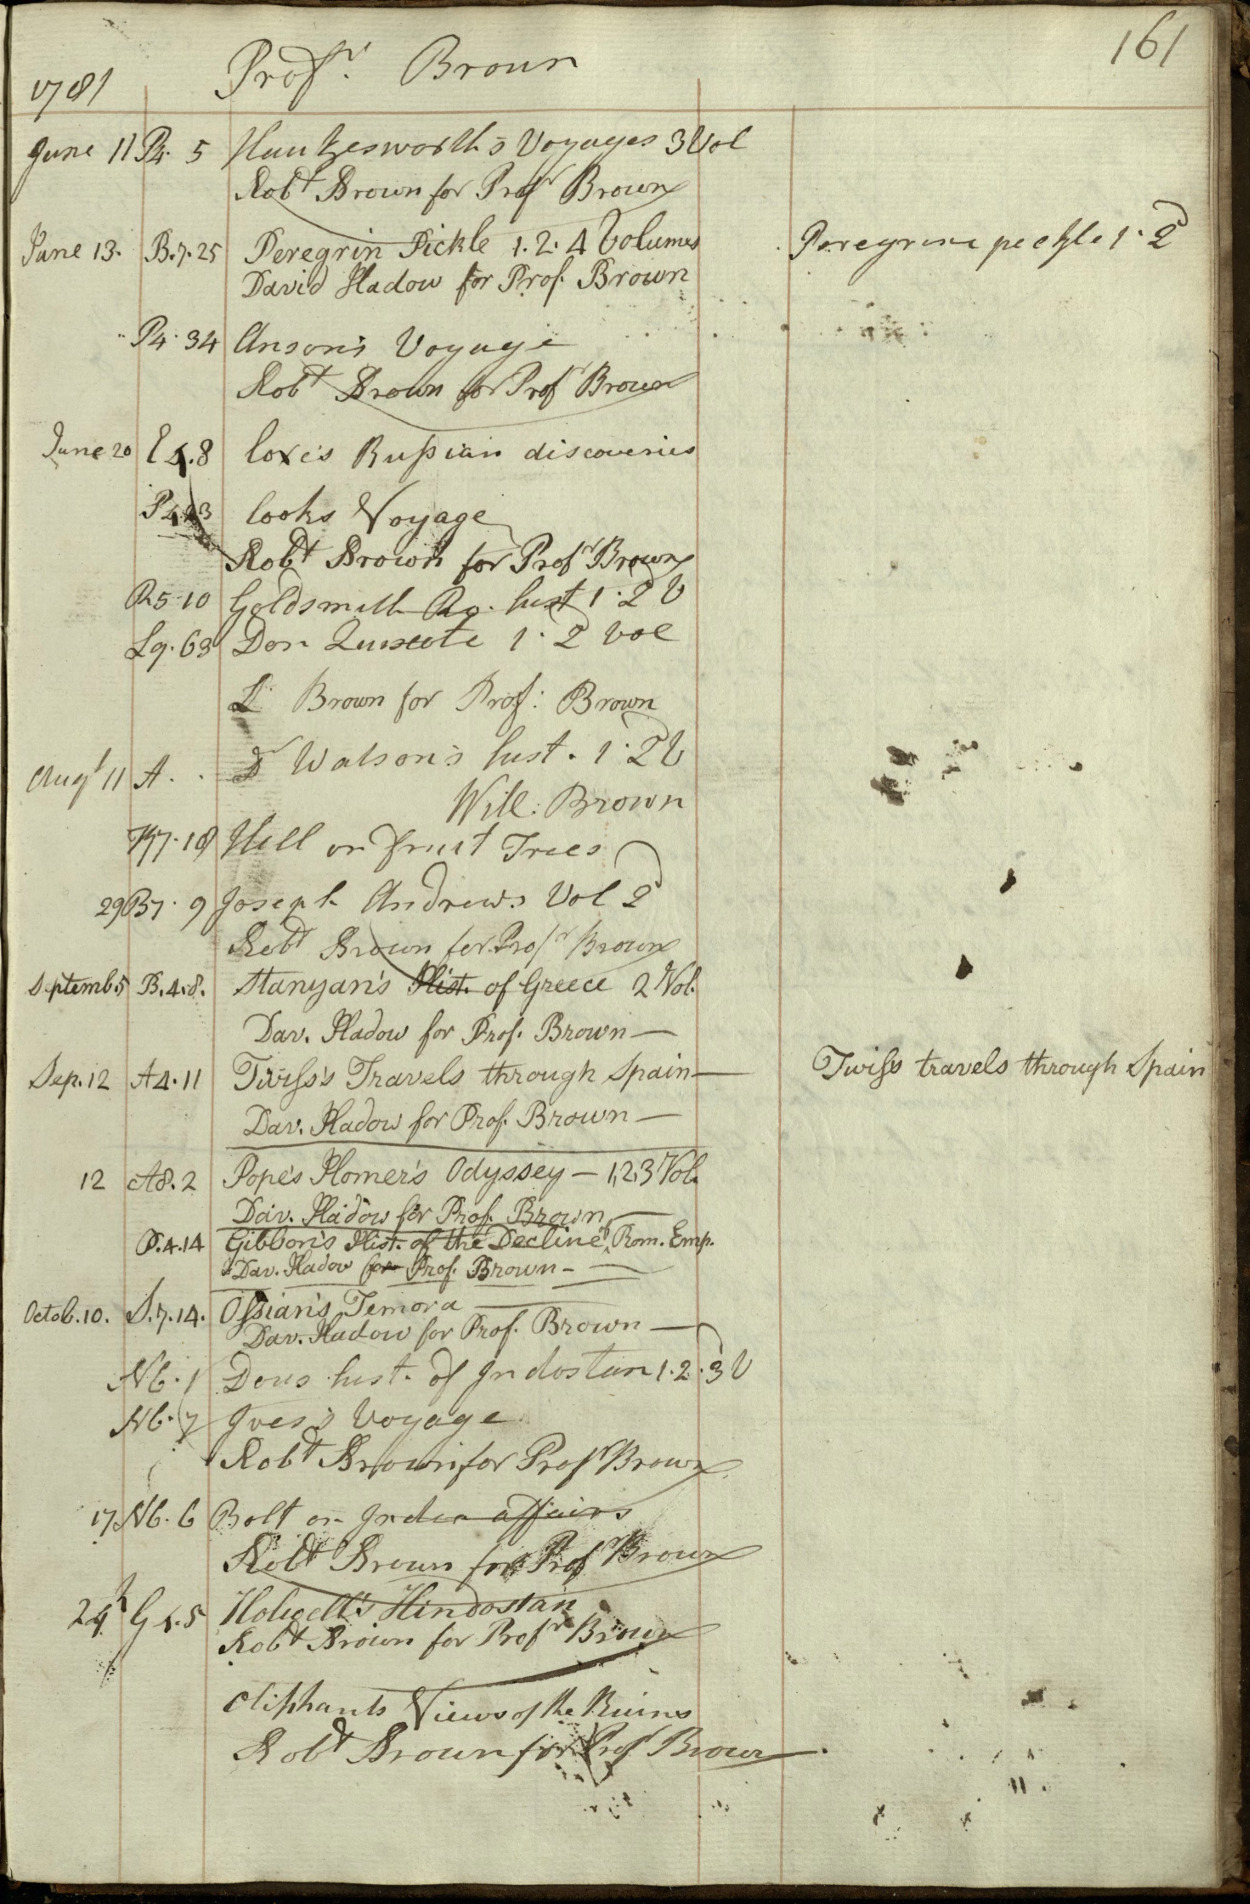 161
1781 Profr. Broun
June 11 P4. 5 Hawkesworth's Voyages 3 Vol
Robt Brown for Profr Brown
June 13. B.7.25 Peregrin Pickle 1. 2. 4 Volumes Peregrine peckle 1. 2d
David Hadow for Prof. Brown
P4. 34 Anson's Voyage
Robt Brown for Profr Brown
June 20 E4.8 Coxe's Russian discoveries
Cooks Voyage
Robt Brown for Profr Brown
R5-10 Goldsmith Ro. hist 1. 2d V
L9. 63 Don Quixote 1. 2 Vol
Brown for Prof: Brown
Augt 11 A. Dr Watson's hist. 1. 2d V
Will: Brown
K7. 18 Hill on Fruit Trees
29 B7. 9 Joseph Andrews Vol 2d
Robt Brown for Profr Brown
Septemb. 5 B.4.8. Stanyan's Hist. of Greece 2 Vol.
Dav. Hadow for Prof. Brown —
Sep. 12 A4.11 Twiss's Travels through Spain — Twiss travels through Spain
Dav. Hadow for Prof. Brown —
12 A8.2 Pope's Homer's Odyssey — 1,2,3 Vol.
Dav. Hadow for Prof. Brown —
P.4.14 Gibbon's Hist. of the Decline of Rom. Emp.
Dav. Hadow for Prof. Brown —
Octob. 10. S.7.14. Ossian's Temora —
Dav. Hadow for Prof. Brown —
N6. 1 Dows hist. of Indostan 1. 2. 3d V
N6. 7 Ives's Voyage
Robt Brown for Profr Brown
17 N6. 6 Bolt on India affairs
Robt Brown for Profr Brown
24th G4.5 Holwell's Hindostan
Robt Brown for Profr Brown
Oliphants Views of the Ruins
Robt Brown for Profr Brown